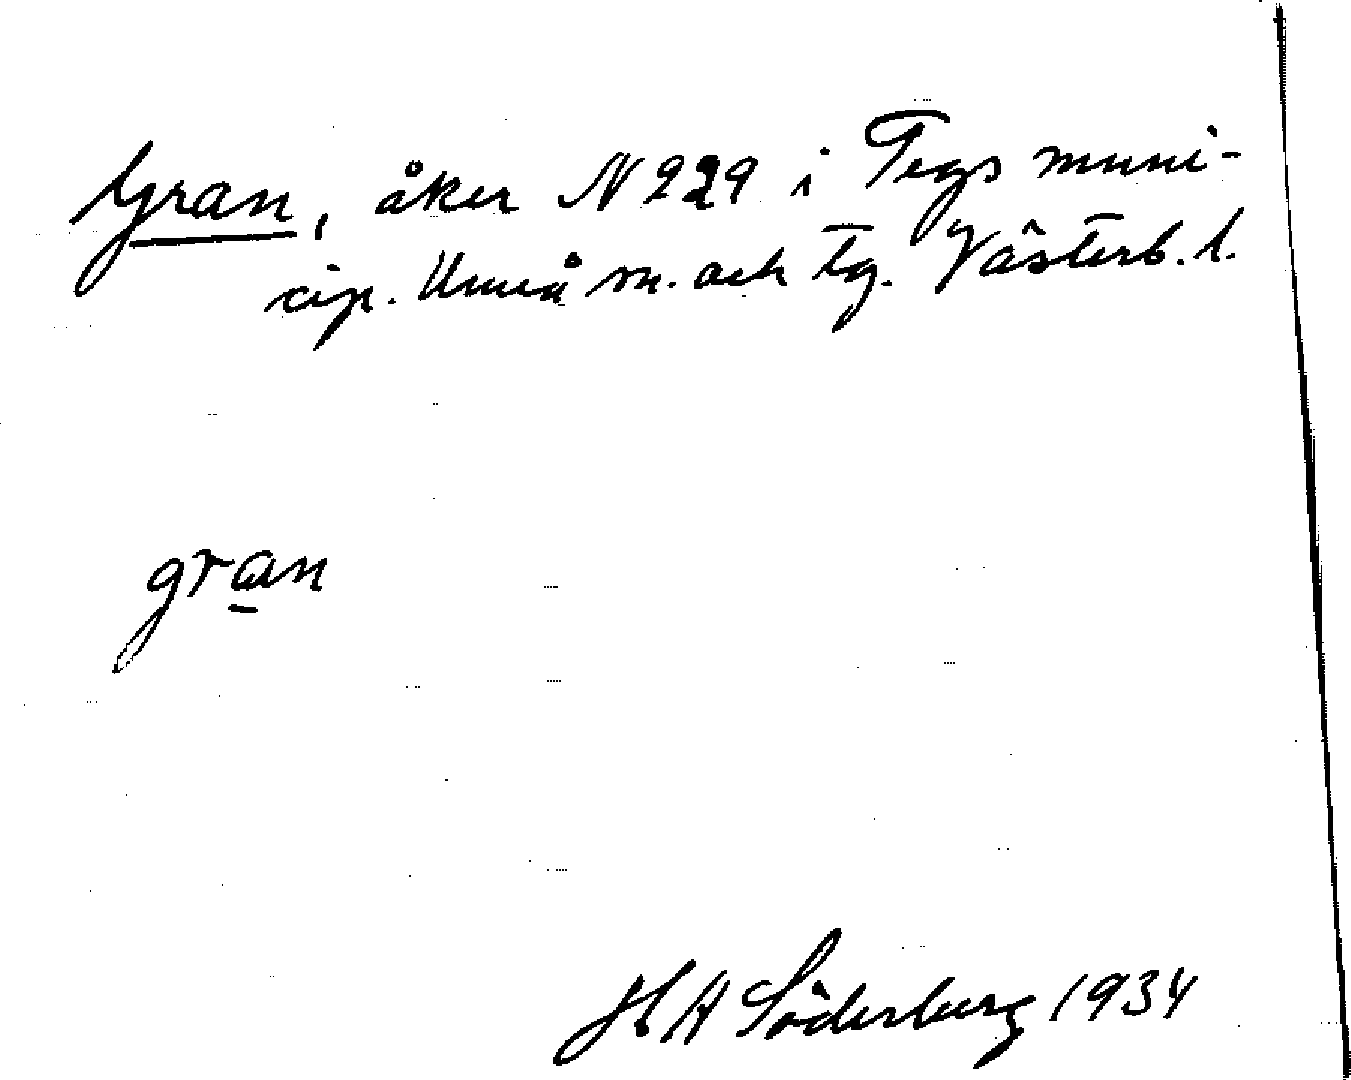 Gran, åker N 229 i Tegs muni-
cip. Umeå sn. och tg. Västerb. l.
gran
H A Söderberg 1934